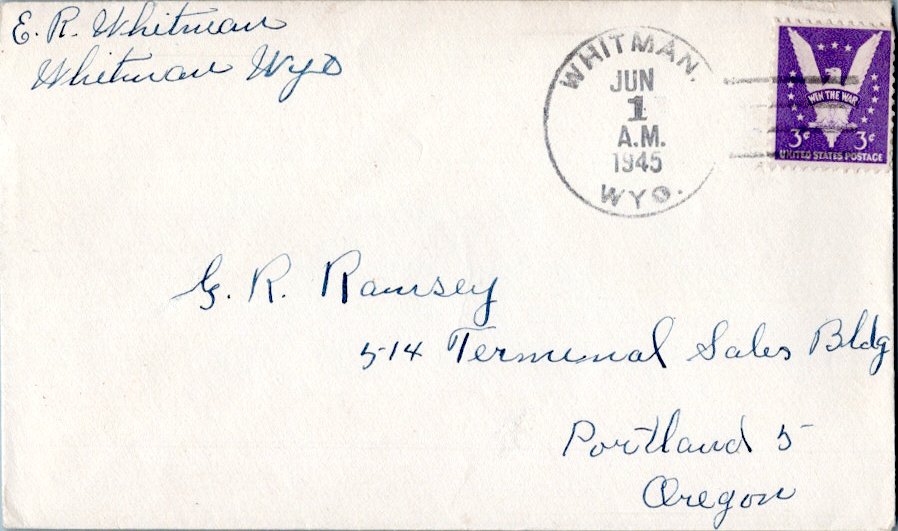 E. R. Whitman
Whitman Wyo
WHITMAN.
JUN
1
A.M.
1945
WYO.
WIN THE WAR
3¢ 3¢
UNITED STATES POSTAGE
G. R. Ramsey
514 Terminal Sales Bldg
Portland 5
Oregon